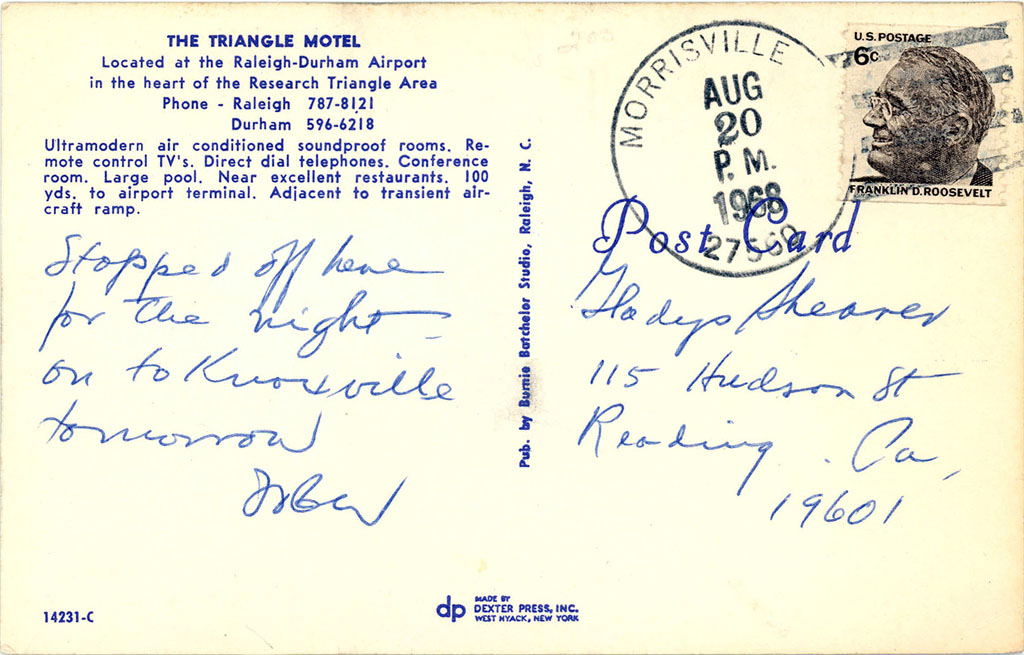 THE TRIANGLE MOTEL
Located at the Raleigh-Durham Airport
in the heart of the Research Triangle Area
Phone - Raleigh 787-8121
Durham 596-6218
Ultramodern air conditioned soundproof rooms. Re-
mote control TV's. Direct dial telephones. Conference
room. Large pool. Near excellent restaurants. 100
yds. to airport terminal. Adjacent to transient air-
craft ramp.
Stopped off here
for the night –
on to Knoxville
tomorrow
14231-C
Pub. by Burnie Batchelor Studio, Raleigh, N. C.
dp
MADE BY
DEXTER PRESS, INC.
WEST NYACK, NEW YORK
MORRISVILLE
AUG
20
P. M.
1968
27560
U.S. POSTAGE
6c
FRANKLIN D. ROOSEVELT
Post Card
Gladys Shearer
115 Hudson St
Reading
19601